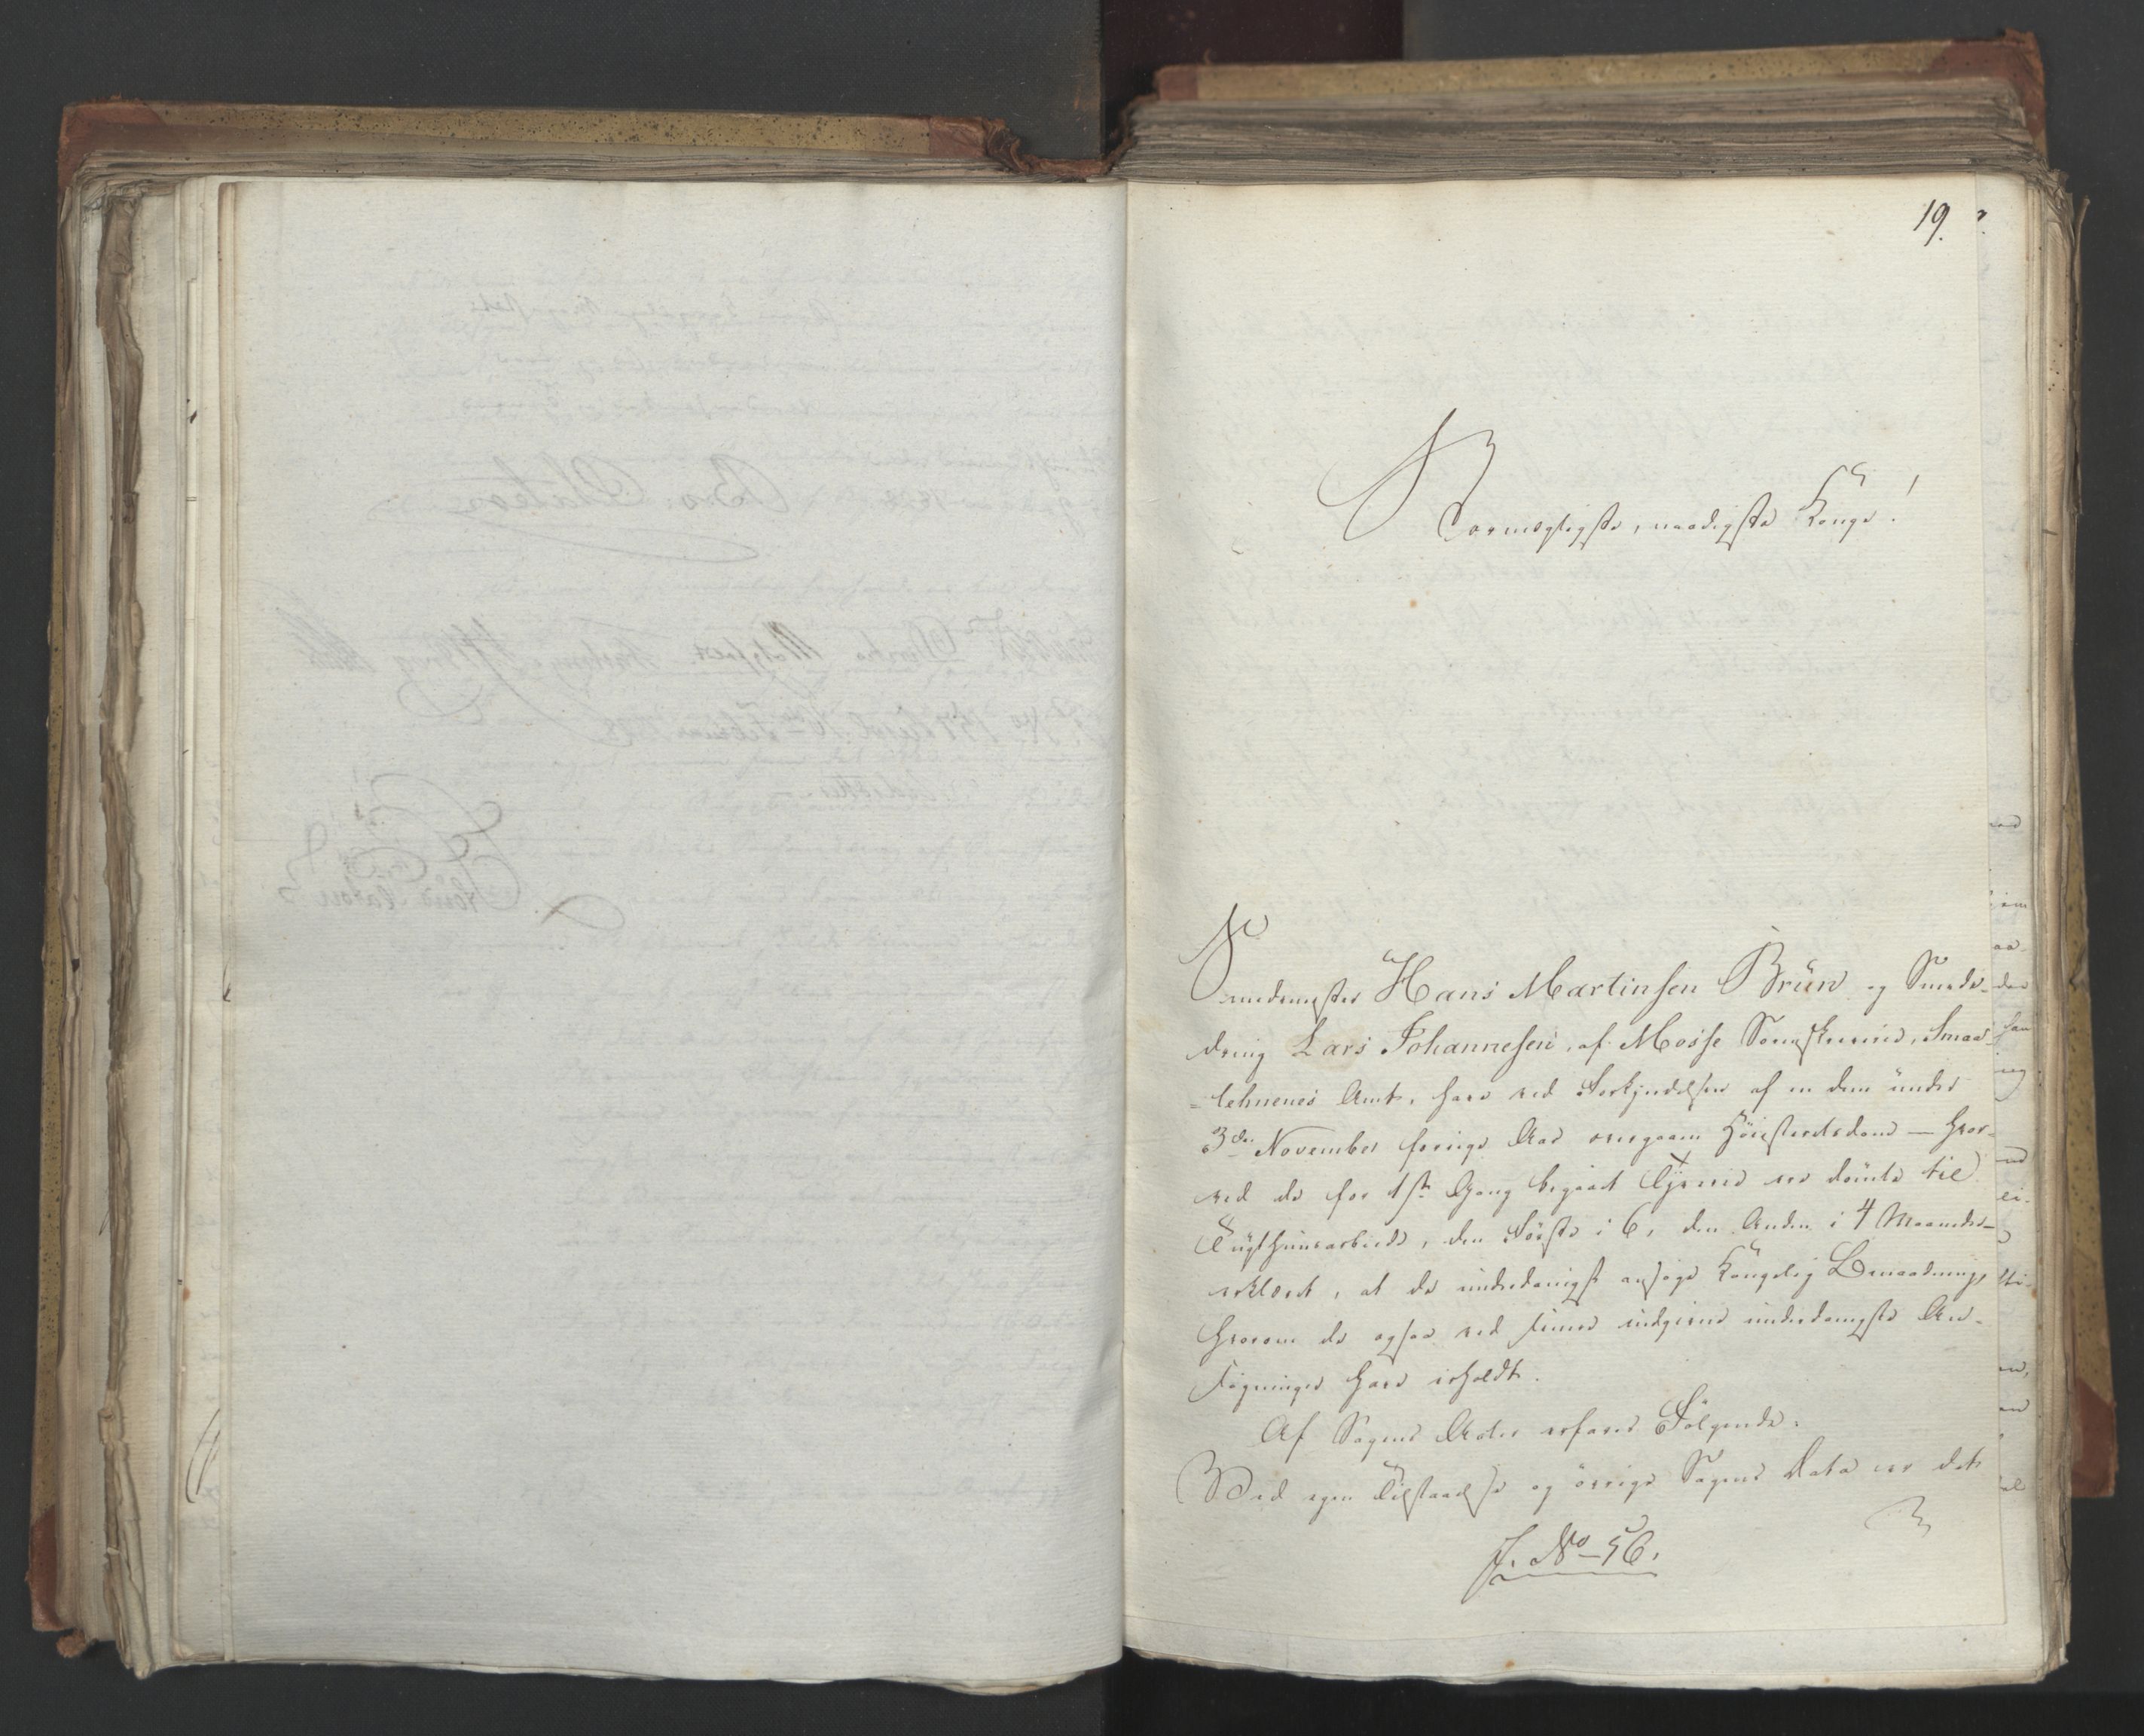 19.
Stormægtigste, naadigste Konge!
Smedemester Hans Martinsen Brün og Smede-
dreng Lars Johannesen, af Mosse Sorenskriverie, Smaa-
=lehnenes Amt, have ved Forkyndelsen af en dem under
3die November forrige Aar overgaaen Höiesteretsdom — hvor-
ved de for 1ste Gang begaaet Tyverie ere dömte til
Tugthuusarbeide, den Förste i 6, den Anden i 4 Maaneder —
erklæret, at de underdanigst ansöge Kongelig Benaadning,
hvorom de ogsaa ved siden indgivne underdanigste An-
sögninger have erholdt.
Af Sagens Acter erfares Fölgende:
Ved egen Tilstaaelse og övrige Sagens Data er det
J. No 56.